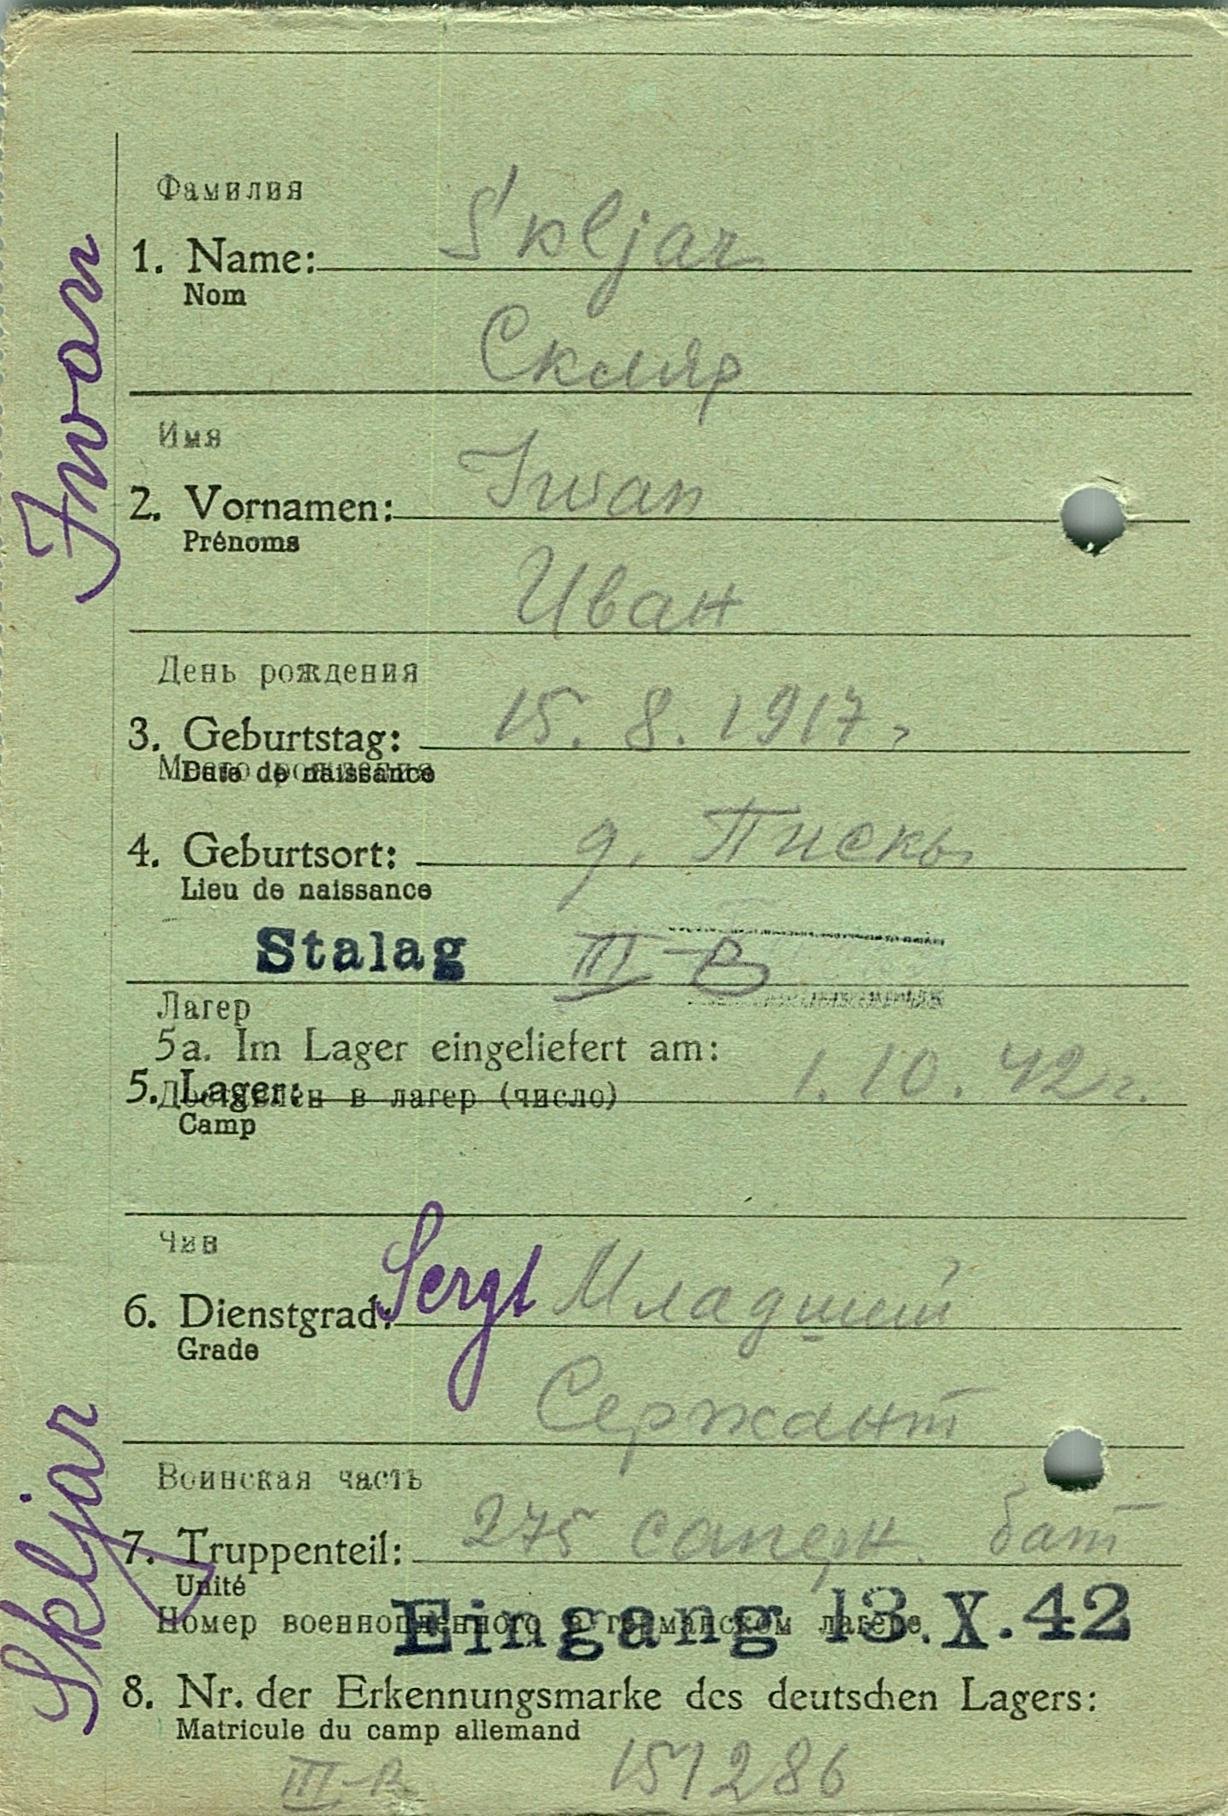 Фамилия
Skljar
1. Name:
Nom
Скляр
Имя
Iwan
2. Vornamen:
Prénoms
Иван
День рождения
15. 8. 1917 г
3. Geburtstag:
Место рождения
Date de naissance
4. Geburtsort: д. Писки
Lieu de naissance
Stalag III-B
Лагер
5a. Im Lager eingeliefert am: 1.10.42 г.
5. Lager:
Доставлен в лагер (число)
Camp
Чин
6. Dienstgrad: Sergt Младший
Grade
Сержант
Воинская часть
7. Truppenteil: 275 саперн. бат
Unité
Номер военнопленного в германском лагере.
Eingang 13.X.42
8. Nr. der Erkennungsmarke des deutschen Lagers:
Matricule du camp allemand
III-B 151286
Skljar Iwan